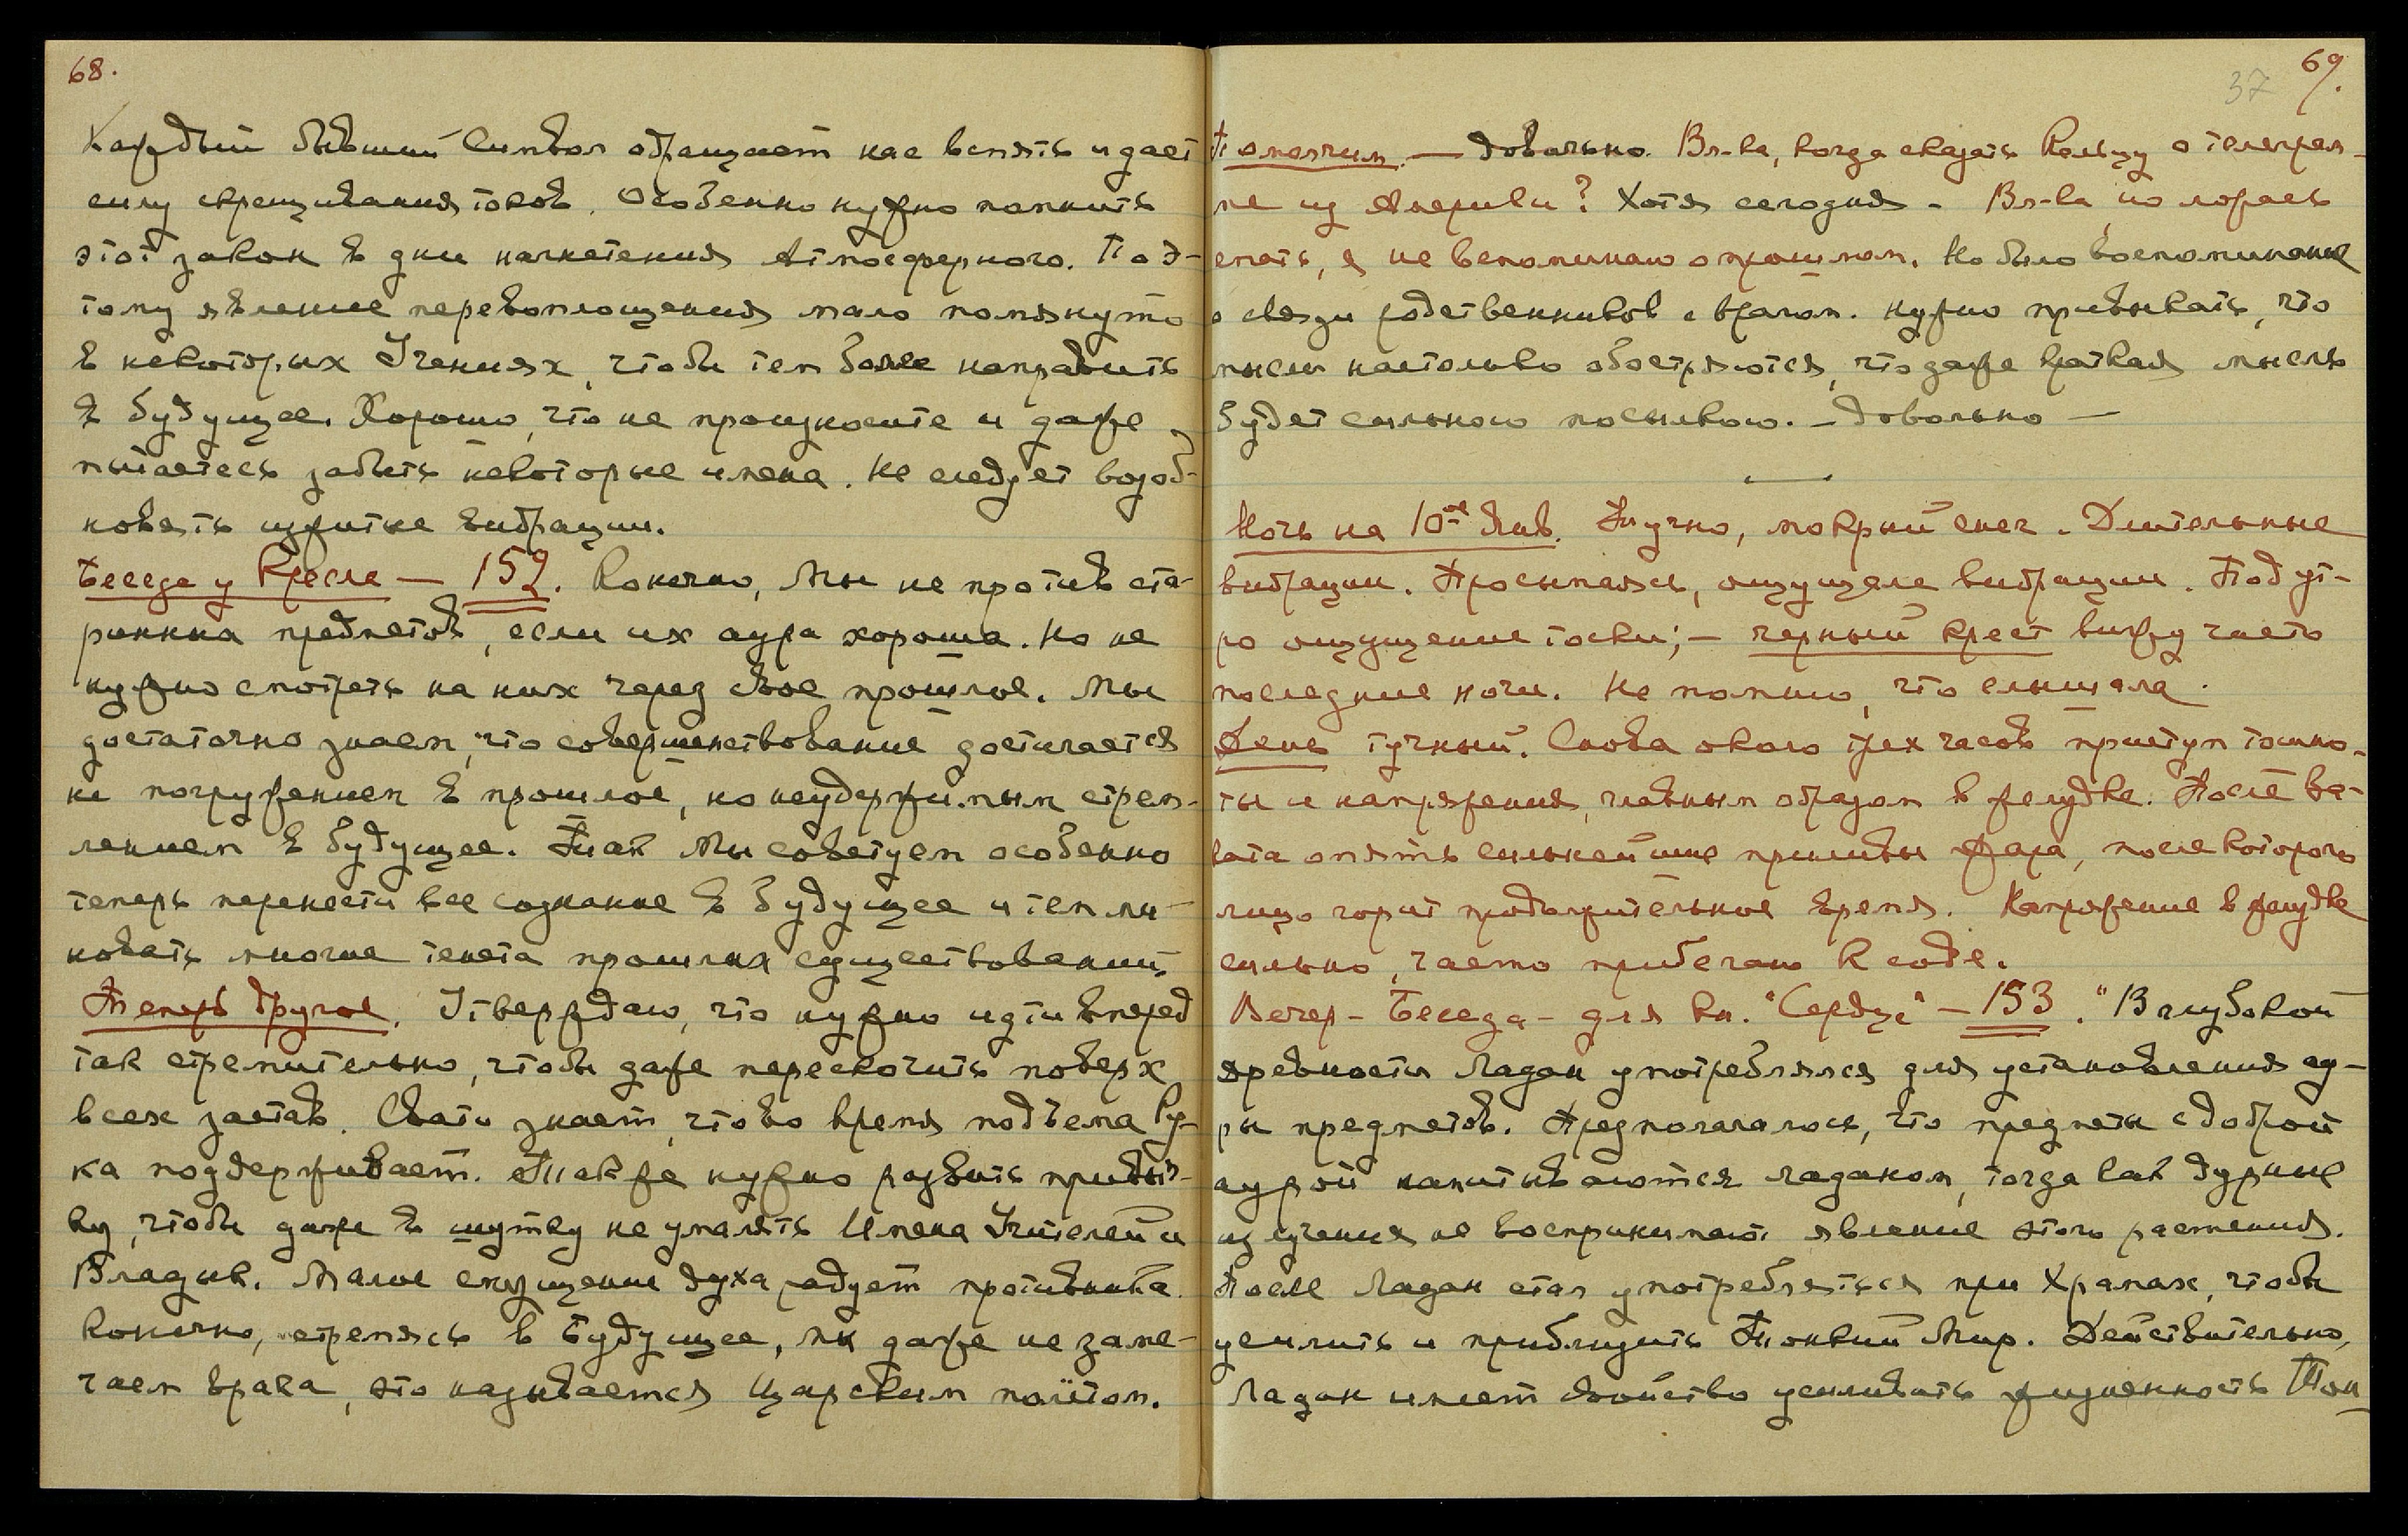 68.
Каждый бывший символ обращает нас вспять и дает
силу скрещивания токов. Особенно нужно помнить
этот закон в дни нагнетения Атмосферного. Поэ-
тому явление перевоплощения мало помянуто
в некоторых Учениях, чтобы тем более направить
в будущее. Хорошо, что не произносите и даже
пытаетесь забыть некоторые имена. Не следует возоб-
новлять изжитые вибрации.
Беседа у Кресла — 152. Конечно, Мы не против ста-
ринных предметов, если их аура хороша. Но не
нужно смотреть на них через свое прошлое. Мы
достаточно знаем, что совершенствование достигается
не погружением в прошлое, но неудержимым стрем-
лением в будущее. Так Мы советуем особенно
теперь перенести все сознание в будущее и тем ми-
новать многие тенета прошлых существований.
Теперь другое. Утверждаю, что нужно идти вперед
так стремительно, чтобы даже перескочить поверх
всех застав. Свати знает, что во время подъема Ру-
ка поддерживает. Также нужно развить привыч-
ку, чтобы даже в шутку не умалять Имена Учителей и
Владык. Малое смущение духа радует противника.
Конечно, стремясь в будущее, мы даже не заме-
чаем врага, это называется Царским полётом.
69.
37
Помолчим. — Довольно. Вл-ка, когда сказать Кольцу о телеграм-
ме из Америки? Хотя сегодня. Вл-ка,
спать, я не вспоминаю о прошлом. Но было воспоминание
о связи родственников с врагом. Нужно привыкать, что
мысли настолько обостряются, что даже краткая мысль
будет сильною посылкою. — Довольно —
Ночь на 10ое Янв. Тучно, мокрый снег. Длительные
вибрации. Просыпаясь, ощущала вибрации. Под ут-
ро ощущение тоски; — черный крест вижу часто
последние ночи. Не помню, что слышала.
День тучный. Снова около трех часов приступ тошно-
ты и напряжения, главным образом в желудке. После За-
ката опять сильнейшие приливы жара, после которого
лицо горит продолжительное время. Напряжение в желудке
сильно, часто прибегаю к соде.
Вечер - Беседа - для кн. "Сердце" — 153. "В глубокой
древности Ладан употреблялся для установления ау-
ры предметов. Предполагалось, что предметы с доброй
аурой напитываются ладаном, тогда как дурные
излучения не воспринимают явление этого растения.
После Ладан стал употребляться при Храмах, чтобы
усилить и приблизить Тонкий Мир. Действительно,
Ладан имеет свойство усиливать жизненность Тон-